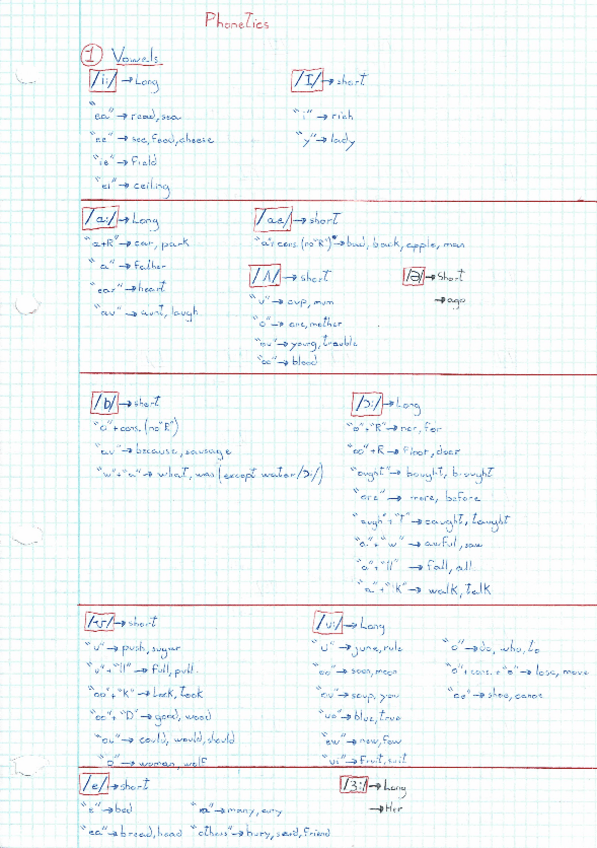 Phonetics
1 Vowels
/i:/ → Long
"ea" → read, sea
"ee" → see, food, cheese
"ie" → field
"ei" → ceiling
/I/ → short
"i" → rich
"y" → lady
/a:/ → Long
"a+R" → car, park
"a" → father
"ear" → heart
"au" → aunt, laugh
/ae/ → short
"a" + cons. (no "R") → bad, back, apple, man
/Λ/ → short
"u" → cup, mum
"o" → one, mother
"ou" → young, trouble
"oo" → blood
/ə/ → Short
→ ago
/b/ → short
"o" + cons. (no "R")
"au" → because, sausage
"w" + "a" → what, was (except water /ɔ:/)
/ɔ:/ → Long
"o" + "R" → nor, for
"oo" + R → floor, door
"ought" → bought, brought
"ore" → more, before
"augh" + "T" → caught, taught
"a" + "w" → awful, saw
"a" + "ll" → fall, all
"a" + "lK" → walk, talk
/ʊ/ → short
"u" → push, sugar
"u" + "ll" → full, pull
"oo" + "K" → look, took
"oo" + "D" → good, wood
"ou" → could, would, should
"o" → woman, wolf
/u:/ → Long
"u" → june, rule
"oo" → soon, moon
"ou" → soup, you
"ue" → blue, true
"ew" → new, few
"ui" → fruit, suit
"o" → do, who, to
"o" + cons. + "e" → lose, move
"oe" → shoe, canoe
/e/ → short
"e" → bed
"ea" → bread, head
"a" → many, any
"others" → bury, said, friend
/3:/ → Long
→ Her